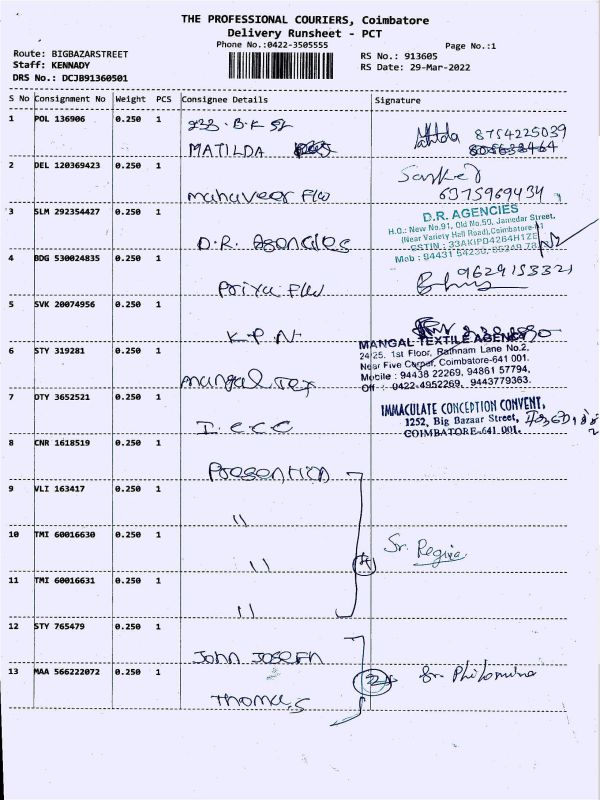 THE PROFESSIONAL COURIERS, Coimbatore
Delivery Runsheet - PCT
Phone No.:0422-3505555
Page No.:1
Route: BIGBAZARSTREET
Staff: KENNADY
DRS No.: DCJB91360501
RS No.: 913605
RS Date: 29-Mar-2022
S No Consignment No Weight PCS Consignee Details Signature
1 POL 136906 0.250 1 233. B.K St
MATILDA
8754225039
2 DEL 120369423 0.250 1 mahaveer FW
Sanked
6375969434
3 SLM 292354427 0.250 1 D.R. Agencies
D.R. AGENCIES
H.O.: New No.91, Old No.59, Jamedar Street,
(Near Variety Hall Road), Coimbatore-1
GSTIN : 33AKIPD4264H1ZE
Mob : 94431 54230,
4 BDG 530024835 0.250 1 Priya FW
9629153321
5 SVK 20074956 0.250 1 K.P.N
6 STY 319281 0.250 1 mangal Tex
MANGAL TEXTILE AGENCY
24/25, 1st Floor, Rathnam Lane No.2,
Near Five Corner, Coimbatore-641 001.
Mobile : 94438 22269, 94861 57794,
Off : 0422-4952269, 9443779363.
7 DTY 3652521 0.250 1 I.C.C.C
IMMACULATE CONCEPTION CONVENT,
1252, Big Bazaar Street,
COIMBATORE-641 001.
8 CNR 1618519 0.250 1 Presention
9 VLI 163417 0.250 1 "
10 TMI 60016630 0.250 1 "
Sr. Regina
11 TMI 60016631 0.250 1 "
12 STY 765479 0.250 1 John Joseph
13 MAA 566222072 0.250 1 Thomas
Sr. Philomina